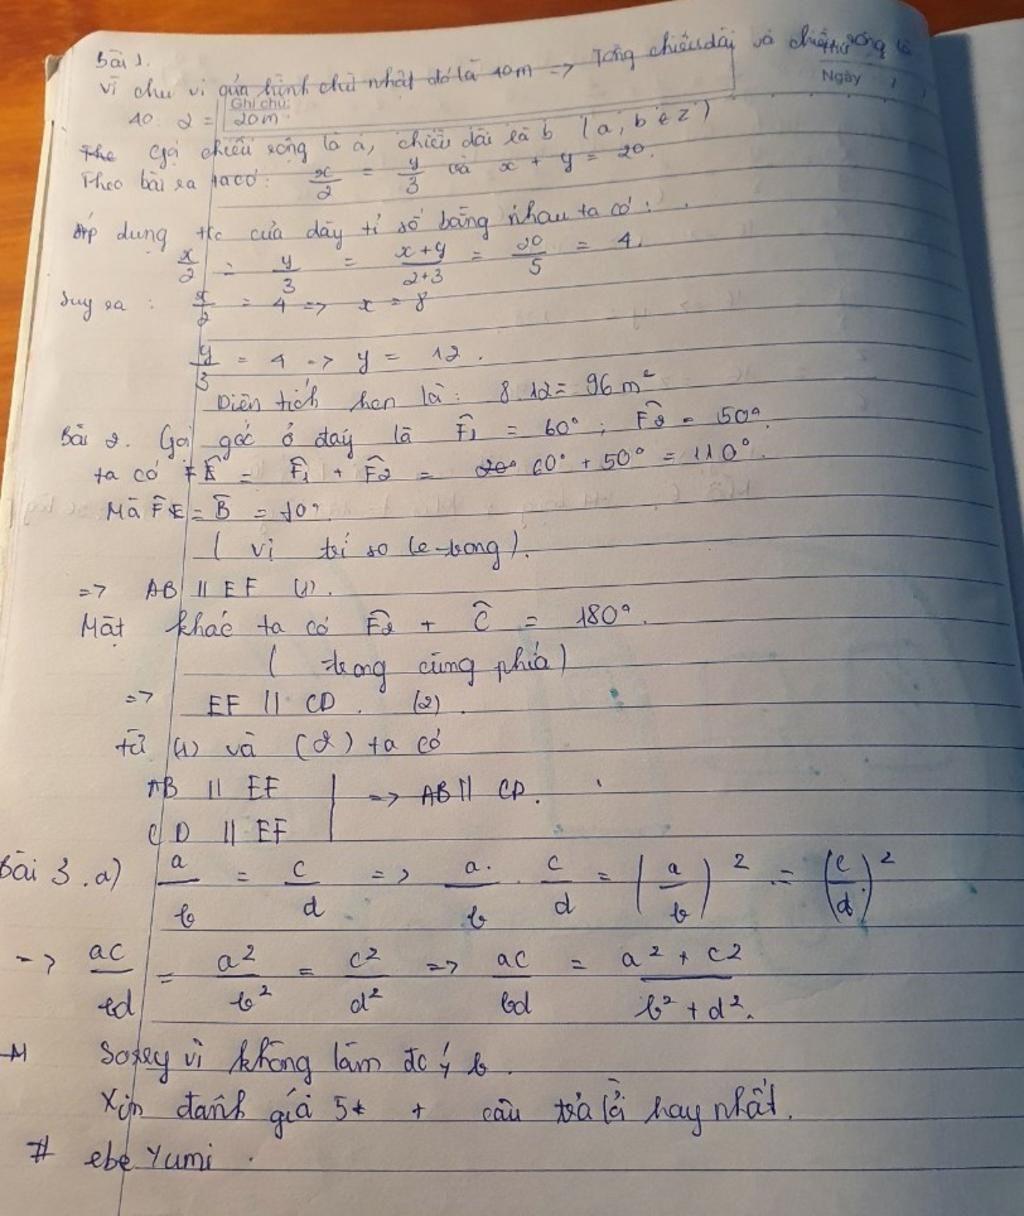 Bài 1.
Vì chu vi của hình chữ nhật đó là 40m => Tổng chiều dài và chiều rộng là
Ngày / /
Ghi chú:
40 : 2 = 20m
The Gọi chiều rộng là a, chiều dài là b (a, b ∈ Z)
Theo bài ra ta có: x/2 = y/3 và x + y = 20.
Áp dụng t/c của dãy tỉ số bằng nhau ta có:
x/2 = y/3 = (x+y)/(2+3) = 20/5 = 4.
Suy ra : x/2 = 4 => x = 8
y/3 = 4 -> y = 12.
Diện tích hcn là: 8.12 = 96 m²
Bài 2. Gọi góc ở đáy là F̂1 = 60° ; F̂2 = 50°.
ta có Ê = F̂1 + F̂2 = 60° + 50° = 110°.
Mà F̂E = B̂ = 10°.
( vì trí so le-trong ).
=> AB // EF (1).
Mặt khác ta có F̂2 + Ĉ = 180°.
( trong cùng phía)
=> EF // CD. (2).
từ (1) và (2) ta có
AB // EF
=> AB // CD.
CD // EF
Bài 3. a) a/b = c/d => a/b . c/d = (a/b)² = (c/d)²
-> ac/bd = a²/b² = c²/d² => ac/bd = (a² + c2)/(b² + d².)
Sorry vì không làm đc ý b.
Xin đánh giá 5* + câu trả lời hay nhất.
# ebe Yumi.